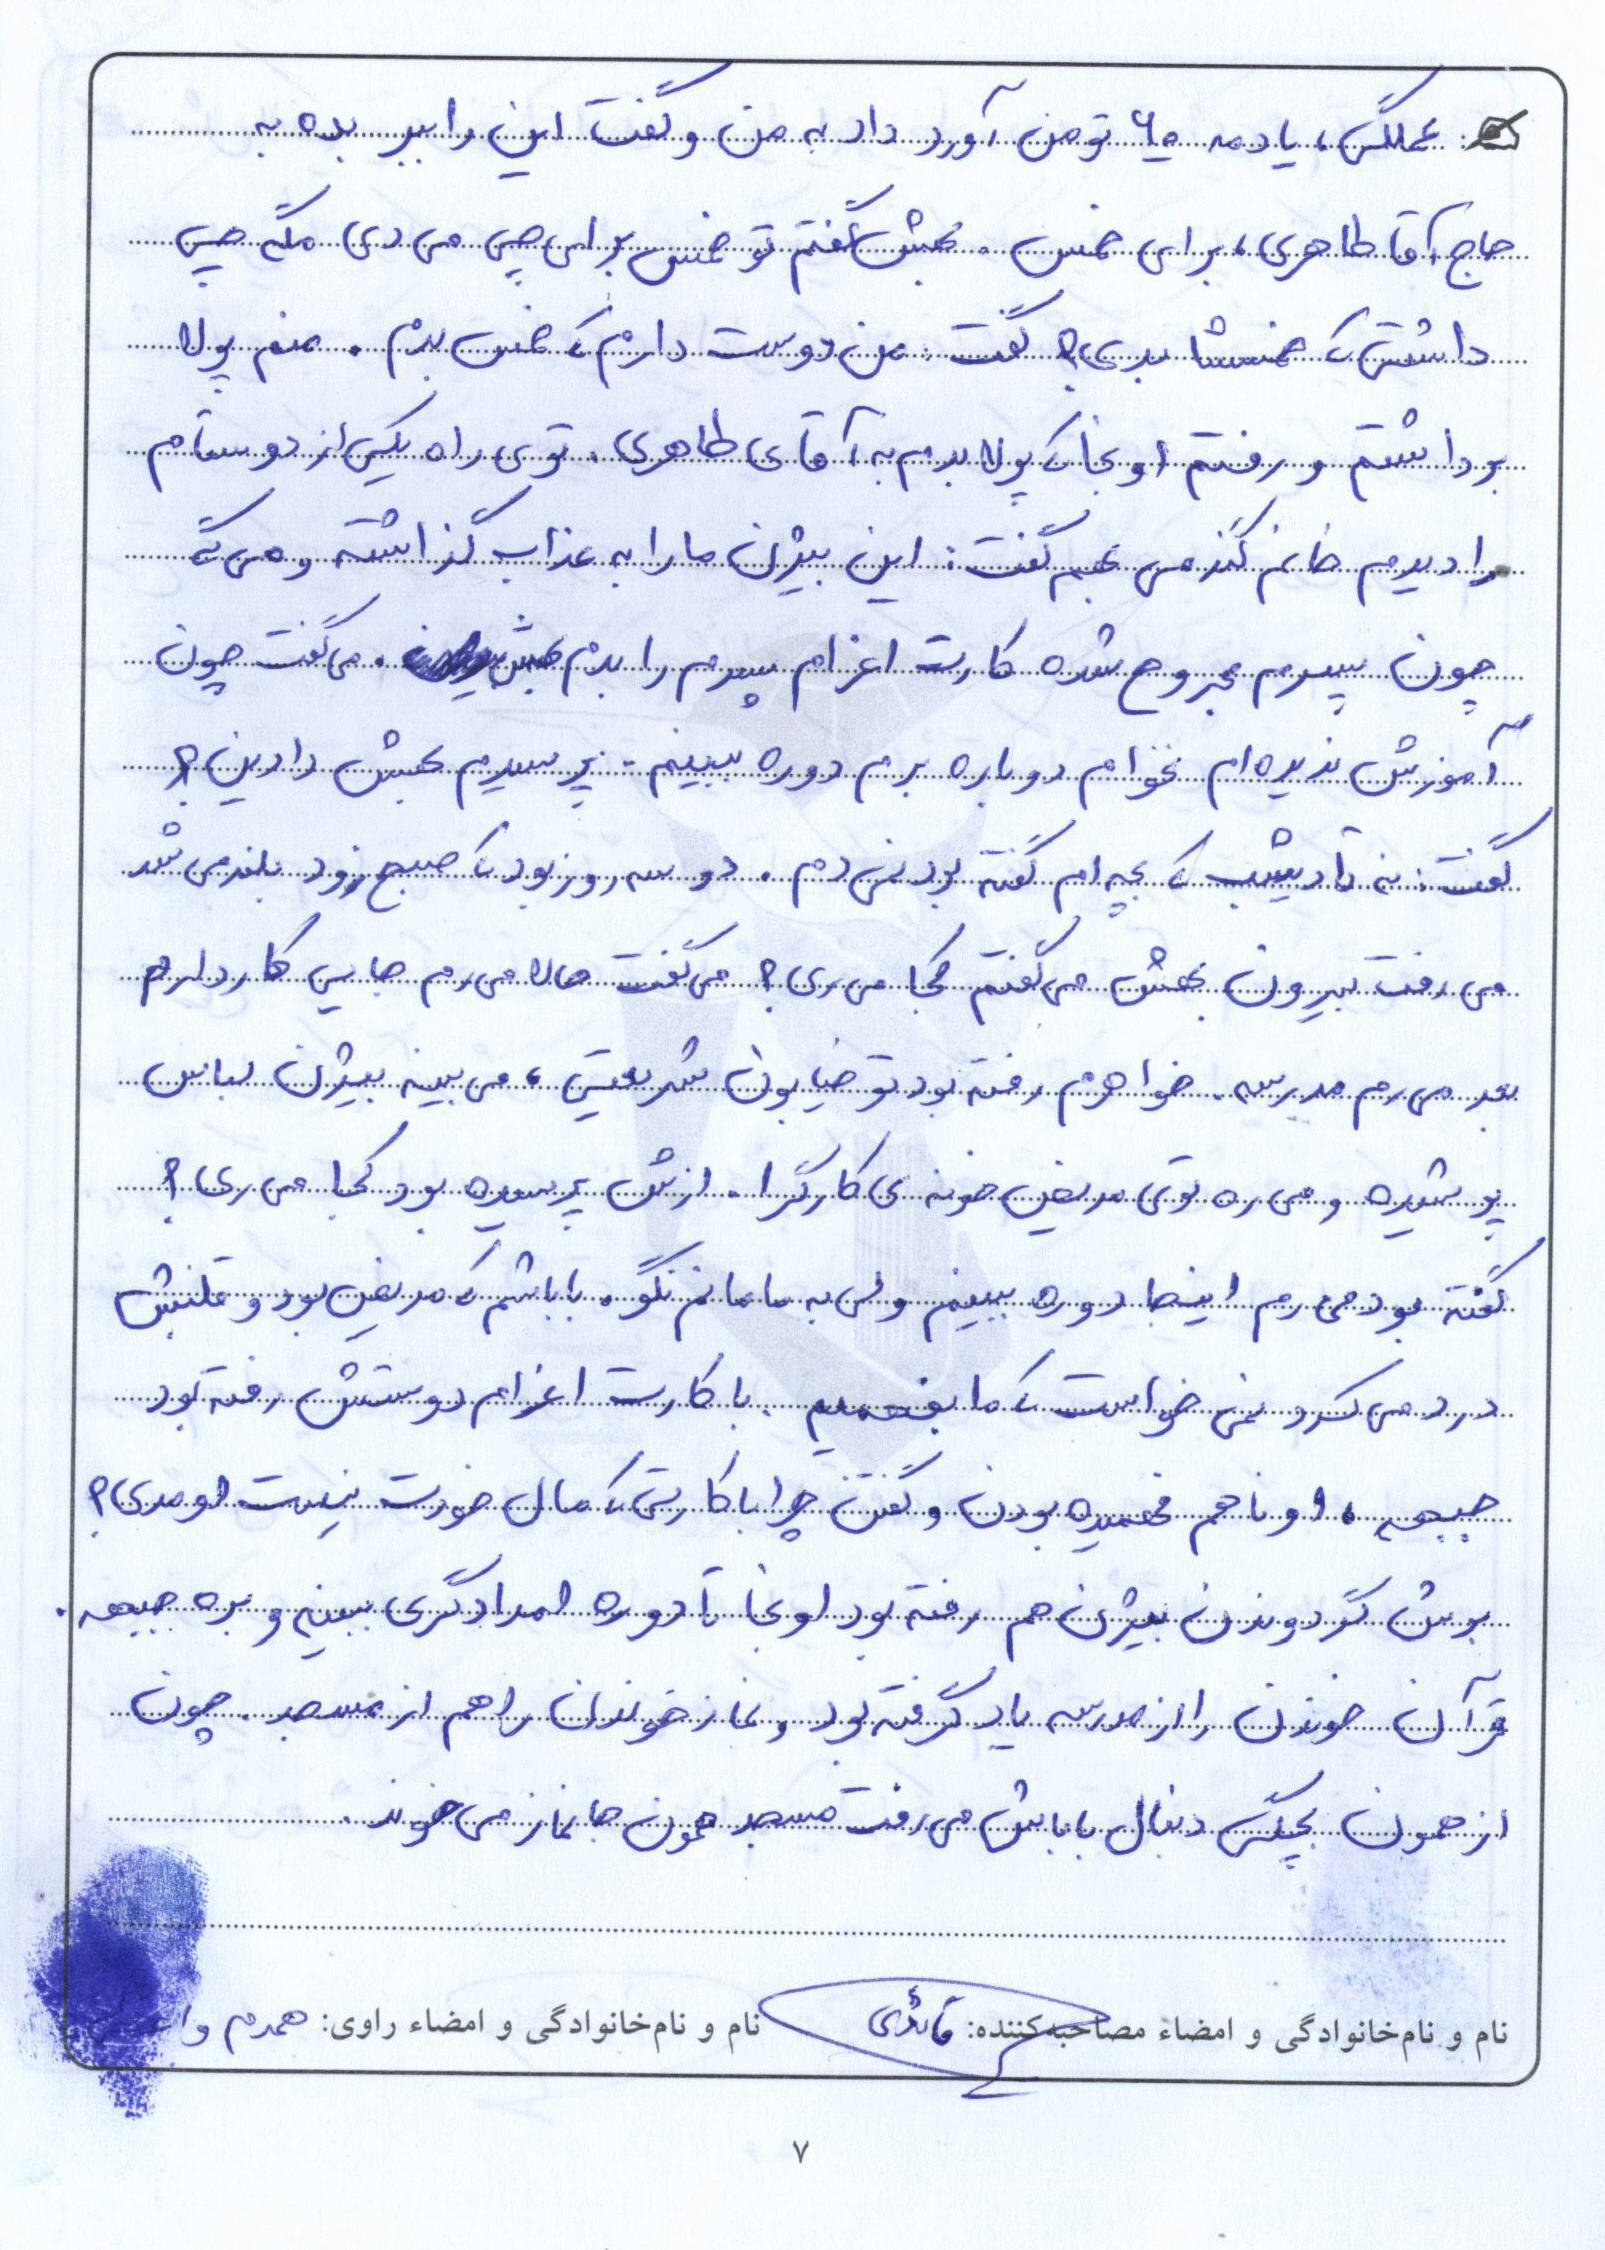 عملگی، یادمه ۶۵ تومن آورد داد به من و گفت این را ببر بده به
حاج آقا طاهری، برای خمس. بهش گفتم تو خمس برای چی می‌دی مگه چی
داشتی که خمسشا بدی؟ گفت: من دوست دارم که خمس بدم. منم پولا
برداشتم و رفتم اونجا که پولا بدم به آقای طاهری. توی راه یکی از دوستام
را دیدم خانم گندمی بهم گفت: این بیژن ما را به عذاب گذاشته و می‌گه
چون پسرم مجروح شده کارت اعزام پسرم را بدم بهش. می‌گفت چون
آموزش ندیده‌ام نخوام دوباره برم دوره ببینم. پرسیدم بهش دادین؟
گفت: نه تا دیشب که بچه‌ام گفته بود نمی‌دم. دو سه روز بود که صبح زود بلند می‌شد
می‌رفت بیرون بهش می‌گفتم کجا می‌ری؟ می‌گفت حالا می‌رم جایی کار دارم
بعد می‌رم مدرسه. خواهرم رفته بود تو خیابون شریعتی، می‌بینه بیژن لباس
پوشیده و می‌ره توی مریض‌خونه‌ی کارگرا. ازش پرسیده بود کجا می‌ری؟
گفته بود می‌رم اینجا دوره ببینم ولی به مامانم نگو. باباشم که مریض بود و قلبش
درد می‌کرد نمی‌خواست که ما بفهمیم. با کارت اعزام دوستش رفته بود
جبهه، اونا هم فهمیده بودن و گفتن چرا با کارتی که مال خودت نیست اومدی؟
برش گردوندن بیژن هم رفته بود اونجا تا دوره امدادگری ببینه و بره جبهه.
قرآن خوندن را از مدرسه یاد گرفته بود و نماز خوندن را هم از مسجد. چون
از همون بچگی دنبال باباش می‌رفت مسجد همون جا نماز می‌خوند.
نام و نام‌خانوادگی و امضاء مصاحبه‌کننده: قائدی نام و نام‌خانوادگی و امضاء راوی: همدم
۷